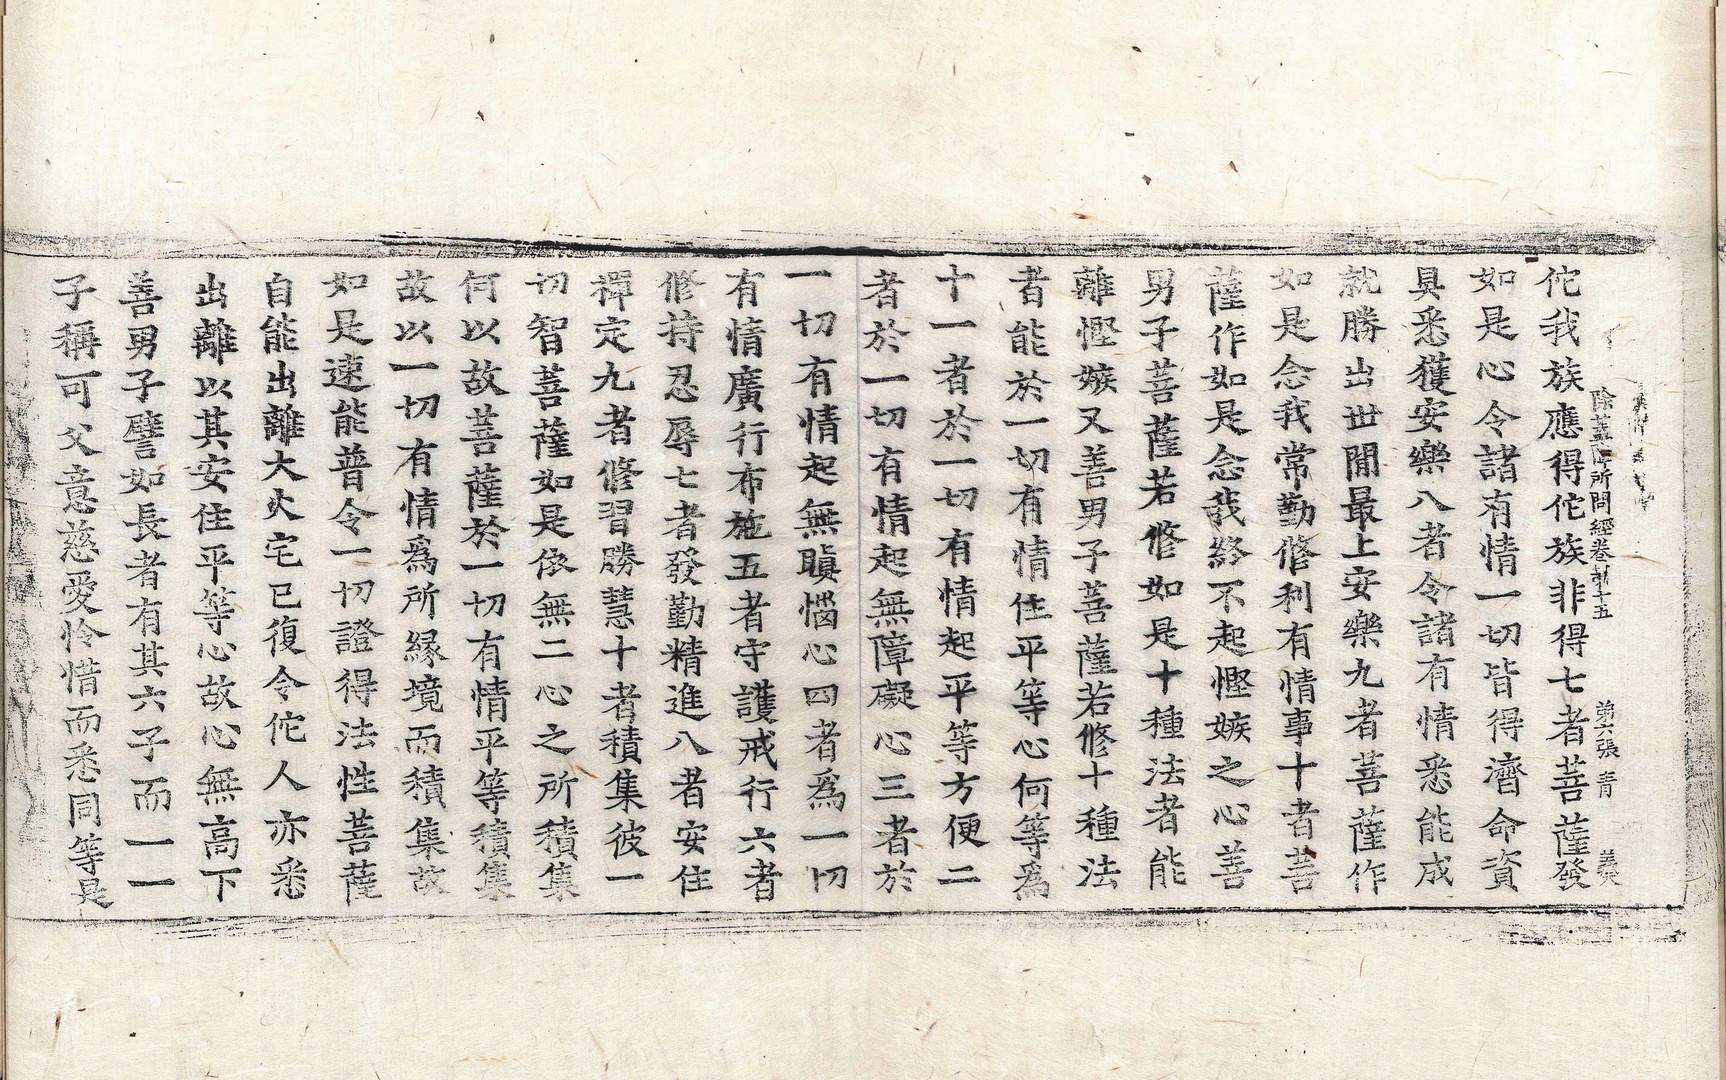 除蓋障所問經卷苐十五 苐六張 青 義奐
佗我族應得佗族非得七者菩薩發
如是心令諸有情一切皆得濟命資
具悉獲安樂八者令諸有情悉能成
就勝出世間最上安樂九者菩薩作
如是念我常勤修利有情事十者菩
薩作如是念我終不起慳嫉之心善
男子菩薩若修如是十種法者能
離慳嫉又善男子菩薩若修十種法
者能於一切有情住平等心何等爲
十一者於一切有情起平等方便二
者於一切有情起無障礙心三者於
一切有情起無瞋惱心四者爲一切
有情廣行布施五者守護戒行六者
修持忍辱七者發勤精進八者安住
禪定九者修習勝慧十者積集彼一
切智菩薩如是依無二心之所積集
何以故菩薩於一切有情平等積集
故以一切有情爲所緣境而積集故
如是速能普令一切證得法性菩薩
自能出離大火宅已復令佗人亦悉
出離以其安住平等心故心無高下
善男子譬如長者有其六子而一一
子稱可父意慈愛怜惜而悉同等是